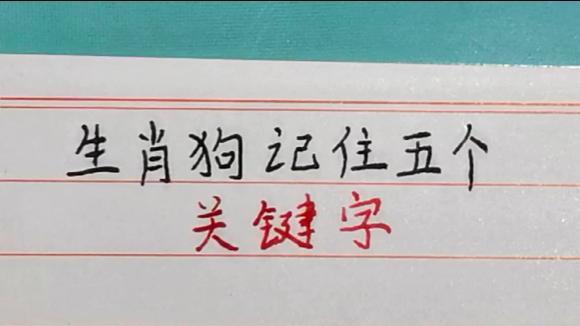 生肖狗记住五个
关键字